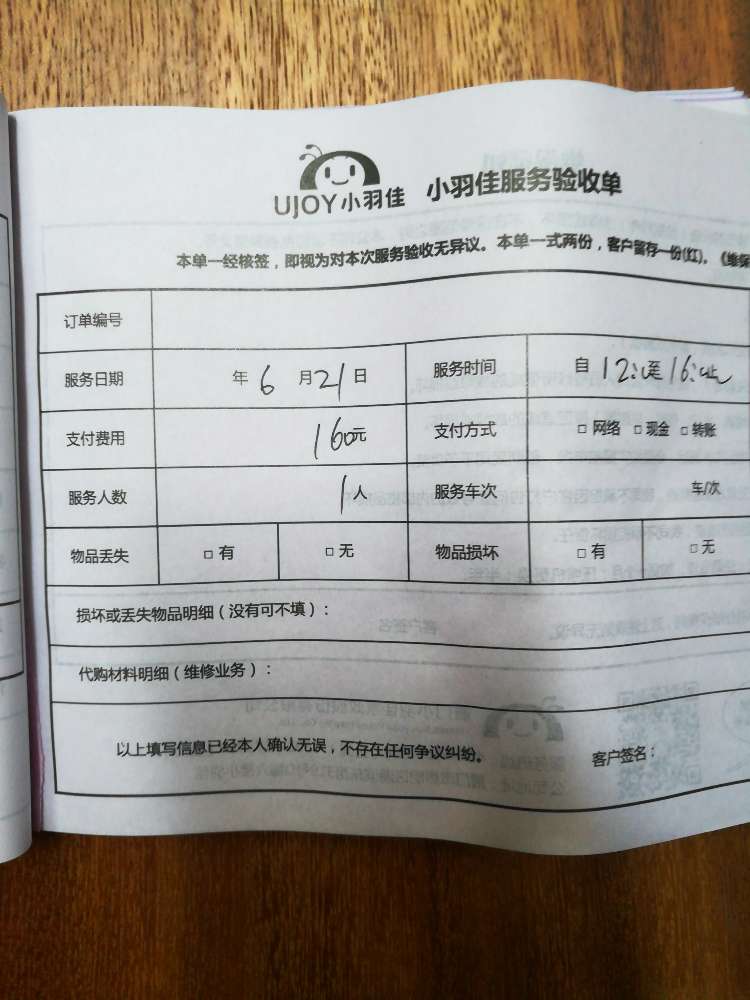 UJOY小羽佳 小羽佳服务验收单
本单一经核签，即视为对本次服务验收无异议。本单一式两份，客户留存一份(红)。《维保
订单编号
服务日期 年 6 月 21 日 服务时间 自 12: 至 16: 止
支付费用 160元 支付方式 □ 网络 □ 现金 □ 转账
服务人数 1人 服务车次 车/次
物品丢失 □ 有 □ 无 物品损坏 □ 有 □ 无
损坏或丢失物品明细（没有可不填）：
代购材料明细（维修业务）：
以上填写信息已经本人确认无误，不存在任何争议纠纷。 客户签名：